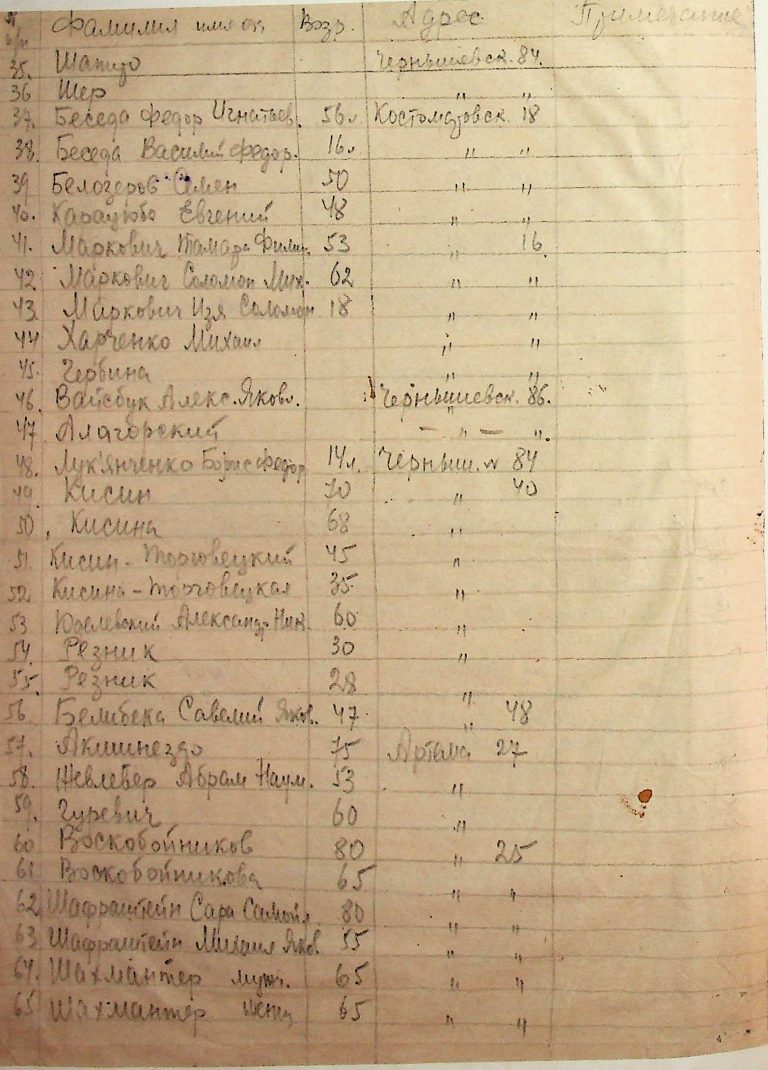 N п/п Фамилия имя от. Возр. Адрес Примечание
35. Шапиро Чернышевск. 84.
36 Шер " "
37. Беседа Федор Игнатьев. 56л. Костомаровск. 18
38. Беседа Василий Федор. 16л " "
39. Белозеров Семен 50 " "
40. Евгений 48 " "
41. Маркович Тамара Филип. 53 " 16.
42 Маркович Соломон Мих. 62 " "
43. Маркович Изя Соломон 18 " "
44 Харченко Михаил " "
45. Червина " "
46. Вайсбук Алекс. Яковл. Чернышевск. 86.
47 Алагорский — " — ".
48. Лук'янченко Борис Федор 14л. Черныш. N 84
49. Кисин 70 " 40
50. Кисина 68 "
51. Кисин-Торговецкий 45 "
52. Кисина-Торговецкая 35 "
53 Александр Ник. 60 "
54. Резник 30 "
55. Резник 28 "
56. Белибека Савелий Яков. 47 " 48
57. 75 Артема 27
58. Жевлебер Абрам Наум. 53 "
59. Гуревич 60 "
60 Воскобойников 80 " 25
61 Воскобойникова 65 " "
62 Шафраштейн Сара Самойл. 80 " "
63. Шафраштейн Михаил Яков 55 " "
64. Шахмантер муж. 65 " "
65 Шахмантер жена 65 " "